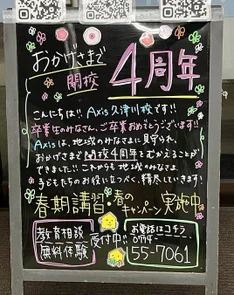 おかげさまで
開校 4周年
こんにちは!! Axis久津川校です!!
卒業生のみなさん、ご卒業おめでとうございます!!
Axisは、地域のみなさまに見守られ、
おかげさまで 開校4周年 をむかえることが
できました!! これからも地域のみなさま
子どもたちのお役に立つべく、精進していきます!
春期講習・春のキャンペーン実施中
教育相談
無料体験
受付中!!
お電話はコチラ
0774-
55-7061